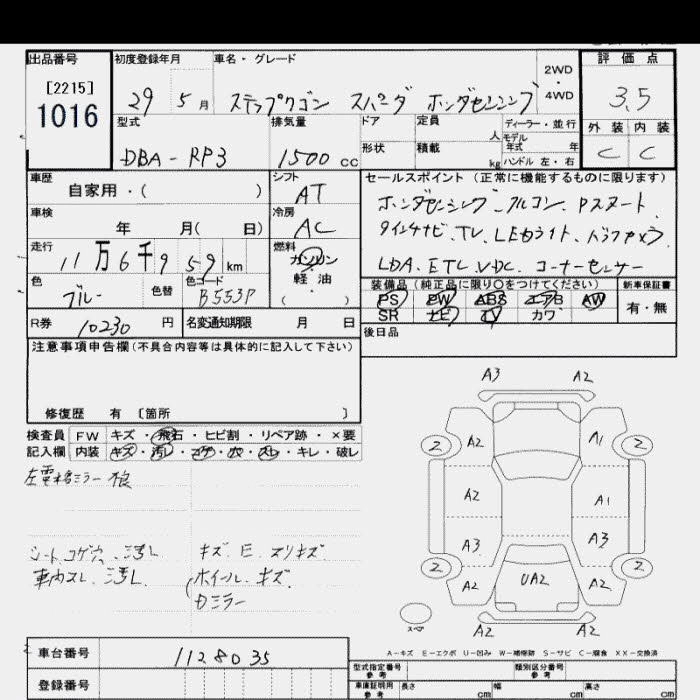 出品番号 初度登録年月 車名・グレード 2WD・4WD 評価点
[2215]
1016
29 5月 ステップワゴン スパーダ ホンダセンシング 3.5
型式 排気量 ドア 定員 人 ディーラー・並行 外装 内装
モデル年式 年
DBA-RP3 1500cc 形状 積載 kg ハンドル 左・右 C C
車歴 シフト セールスポイント (正常に機能するものに限ります)
自家用・( ) AT
ホンダセンシング.アルコン.Pスタート.
車検 冷房
年 月( 日) AC
ナビ.TV.LEDライト.バックカメラ.
走行 燃料
11万6千959km ガソリン
LDA.ETC.VDC.コーナーセンサー
色 色替 色コード 軽油
ブルー B553P ( )
装備品 (純正品に限り○をつけてください) 新車保証書
PS PW ABS エアB AW 有・無
SR ナビ TV カワ
R券 10230円 名変通知期限 月 日
後日品
注意事項申告欄(不具合内容等は具体的に記入して下さい)
修復歴 有 〔箇所 〕
検査員 FW キズ・飛石・ヒビ割・リペア跡・×要
記入欄 内装 キズ・汚レ・コゲ・穴・スレ・キレ・破レ
左電格ミラー
シートコゲ穴.汚れ キズ.E.スリキズ
車内スレ.汚れ. ホイール.キズ
ミラー
A3 A2
2 A2 A1 2
A2 A1
A3 A3
2 A2 UA2 A2 2
スペア
A2 A2
A-キズ E-エクボ U-凹み W-補修跡 S-サビ C-腐食 XX-交換済
車台番号 1128035
型式指定番号 参考 類別区分番号 参考
登録番号
車庫証明用 参考 長さ cm 幅 cm 高さ cm